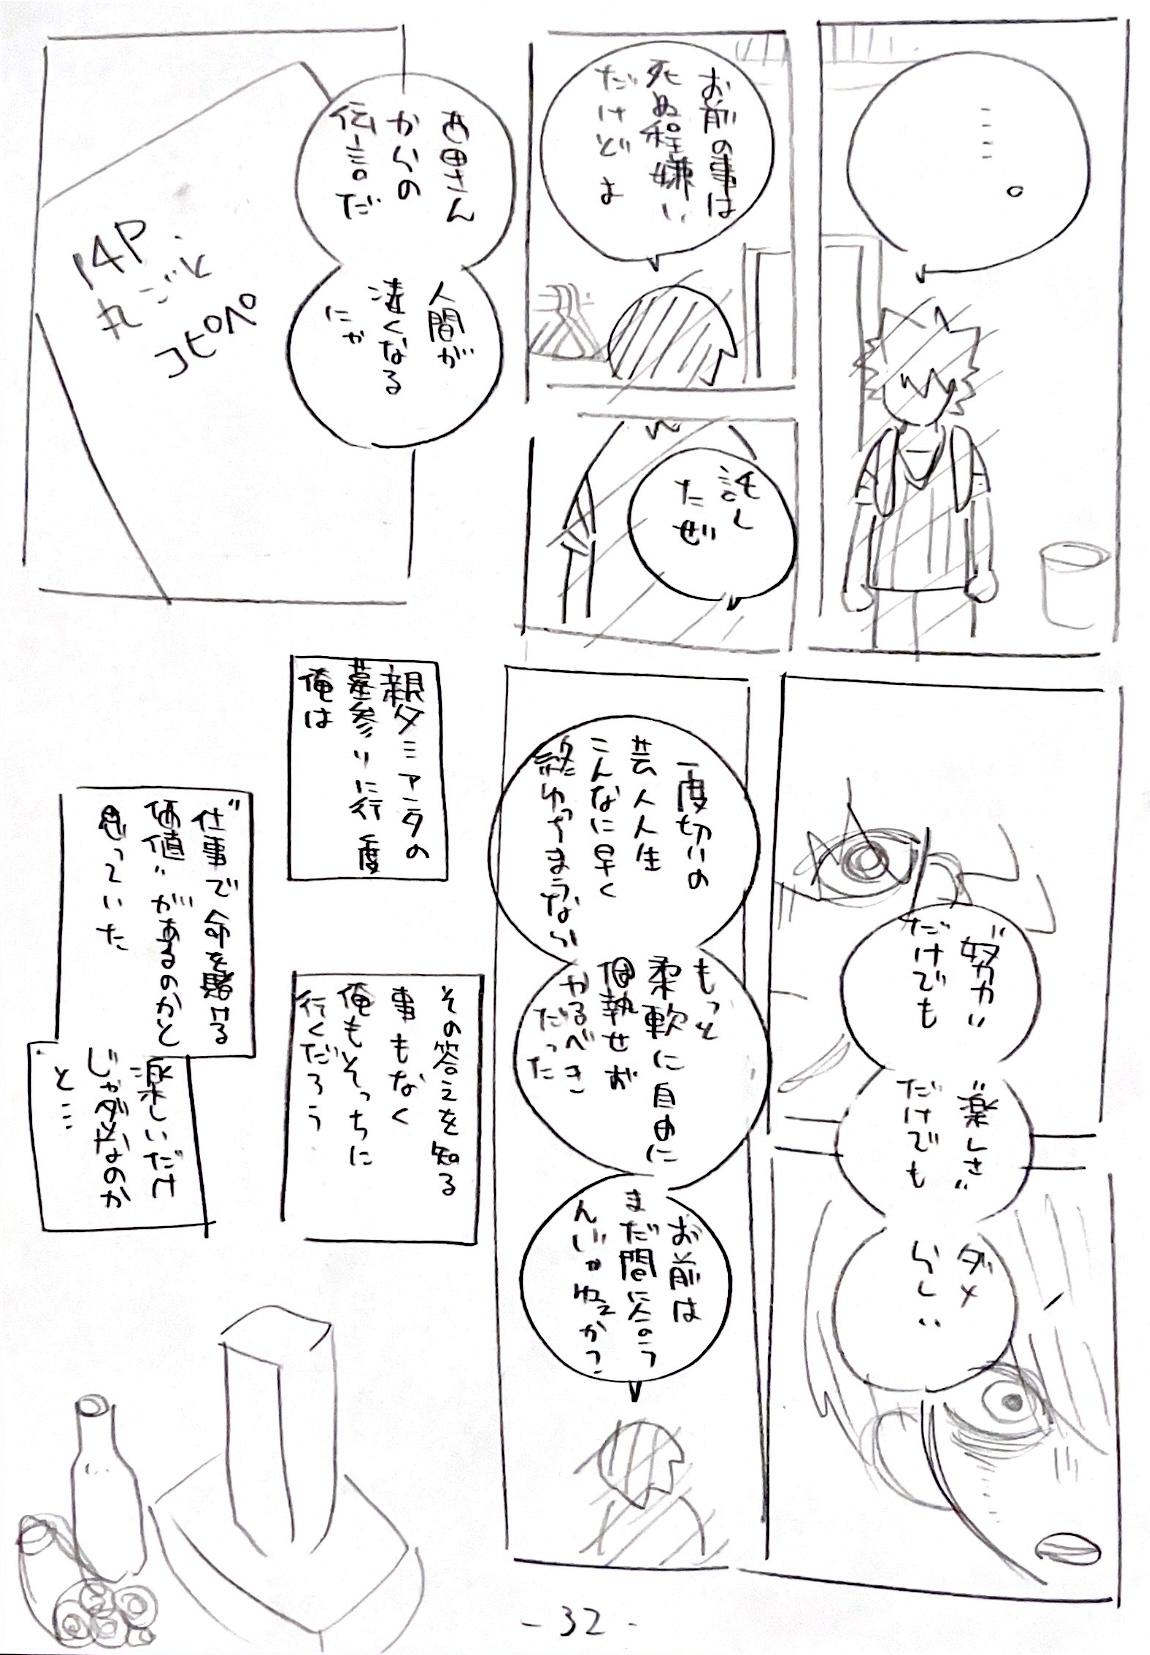 ……。
お前の事は
死ぬ程嫌い
だけどよ
託し
たぜ
西田さん
からの
伝言だ
人間が
凄くなる
にゃ
14P.
丸ごと
コピペ
"努力"
だけでも
"楽しさ"
だけでも
ダメ
らしい
一度切りの
芸人人生
こんなに早く
終わっちまうなら
もっと
柔軟に自由に
固執せず
やるべき
だった
お前は
まだ間に合う
んじゃねェか?
親父ミアンタの
墓参りに行く度
俺は
"仕事で命を賭ける
価値"があるのかと
思っていた
楽しいだけ
じゃダメなのか
と…
その答えを知る
事もなく
俺もそっちに
行くだろう
-32-